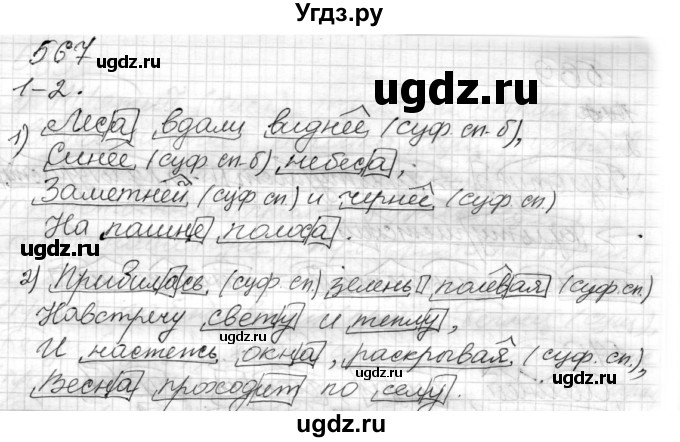 Угдз.ру
567
ugdz.ru
ugdz.ru
1-2.
1) Леса вдали виднее (суф. сп-б),
Синее (суф. сп-б) небеса,
ugdz.ru
Заметней (суф. сп.) и чернее (суф. сп.)
На пашне полоса.
ugdz.ru
ugdz.ru
2) Прибилось (суф. сп.) зелень полевая (суф. сп.)
Навстречу свету и теплу,
И настежь окна, раскрывая (суф. сп.),
ugdz.ru
ugdz.ru
Весна проходит по селу.
ugdz.ru